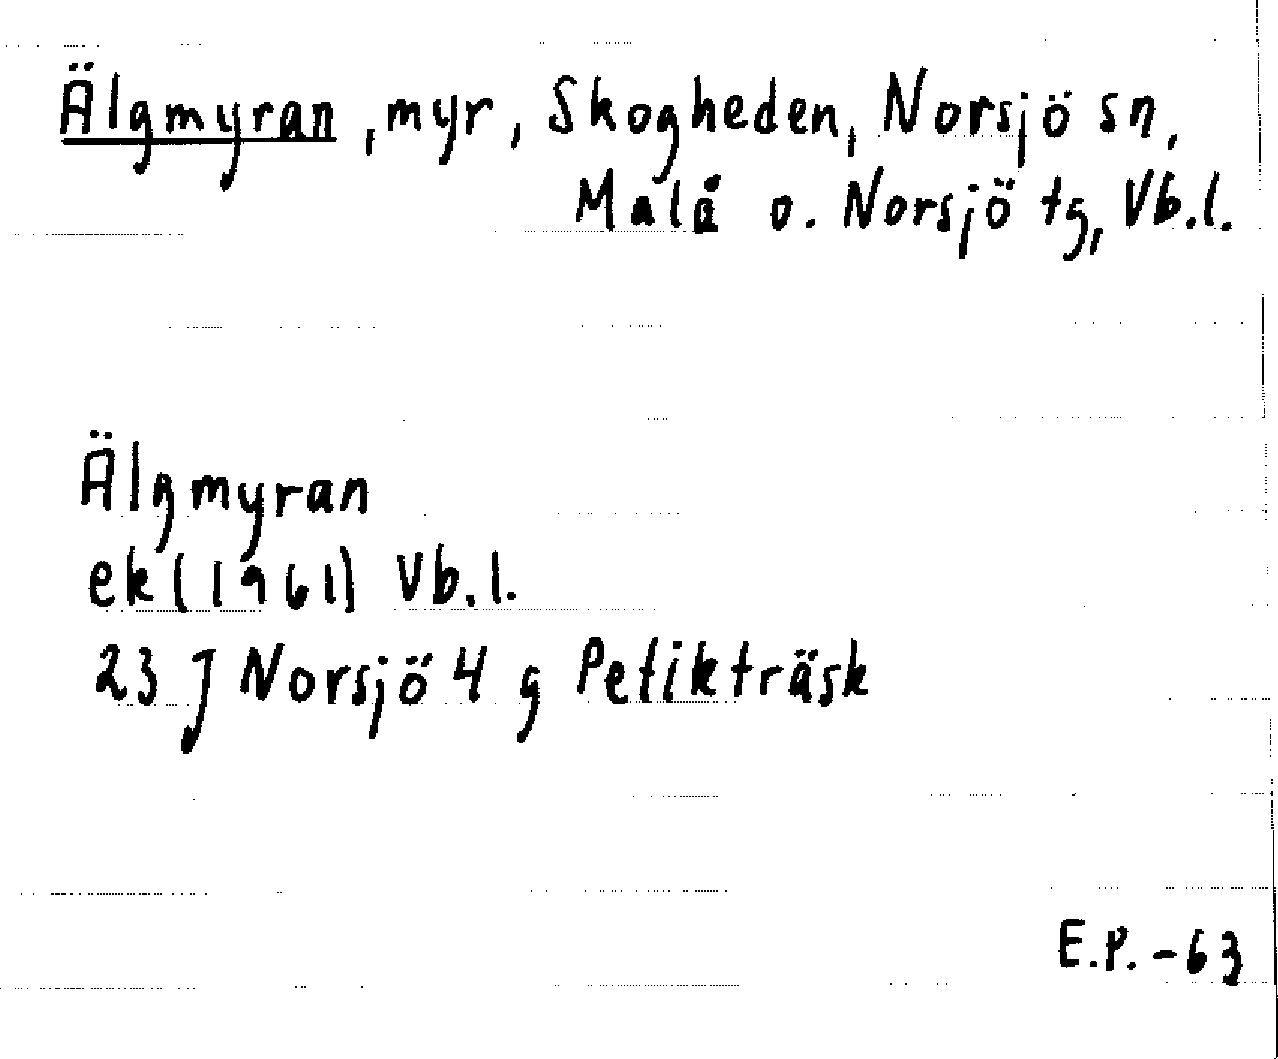 Älgmyran, myr, Skogheden, Norsjö sn,
Malå o. Norsjö tg, Vb.l.
Älgmyran
ek (1961) Vb.l.
23 J Norsjö 4 g Petikträsk
E.P. -63